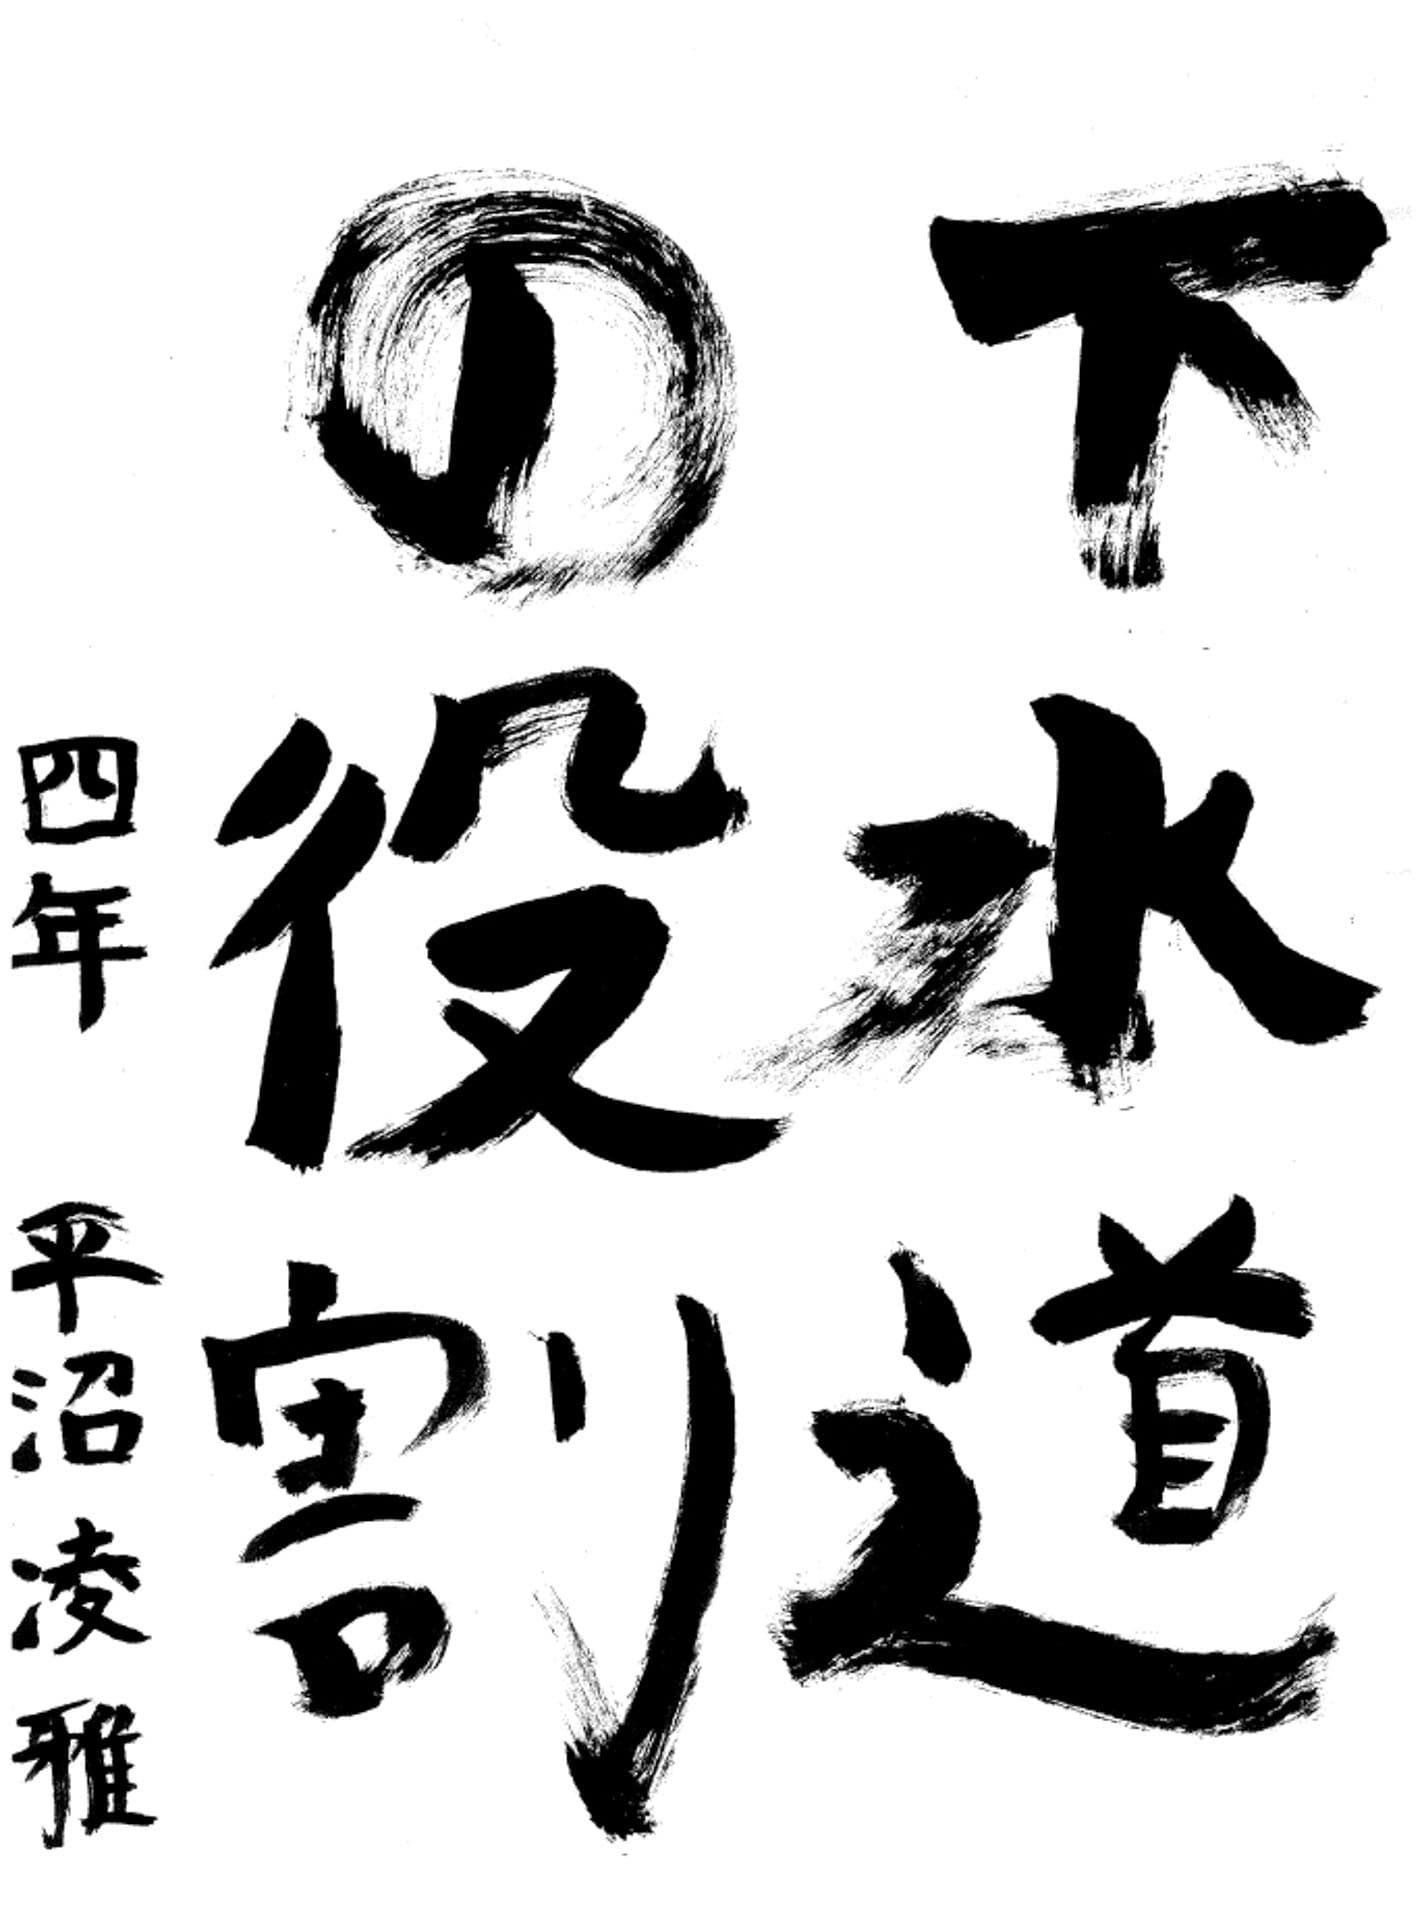 下水道
の役割
四年 平沼凌雅